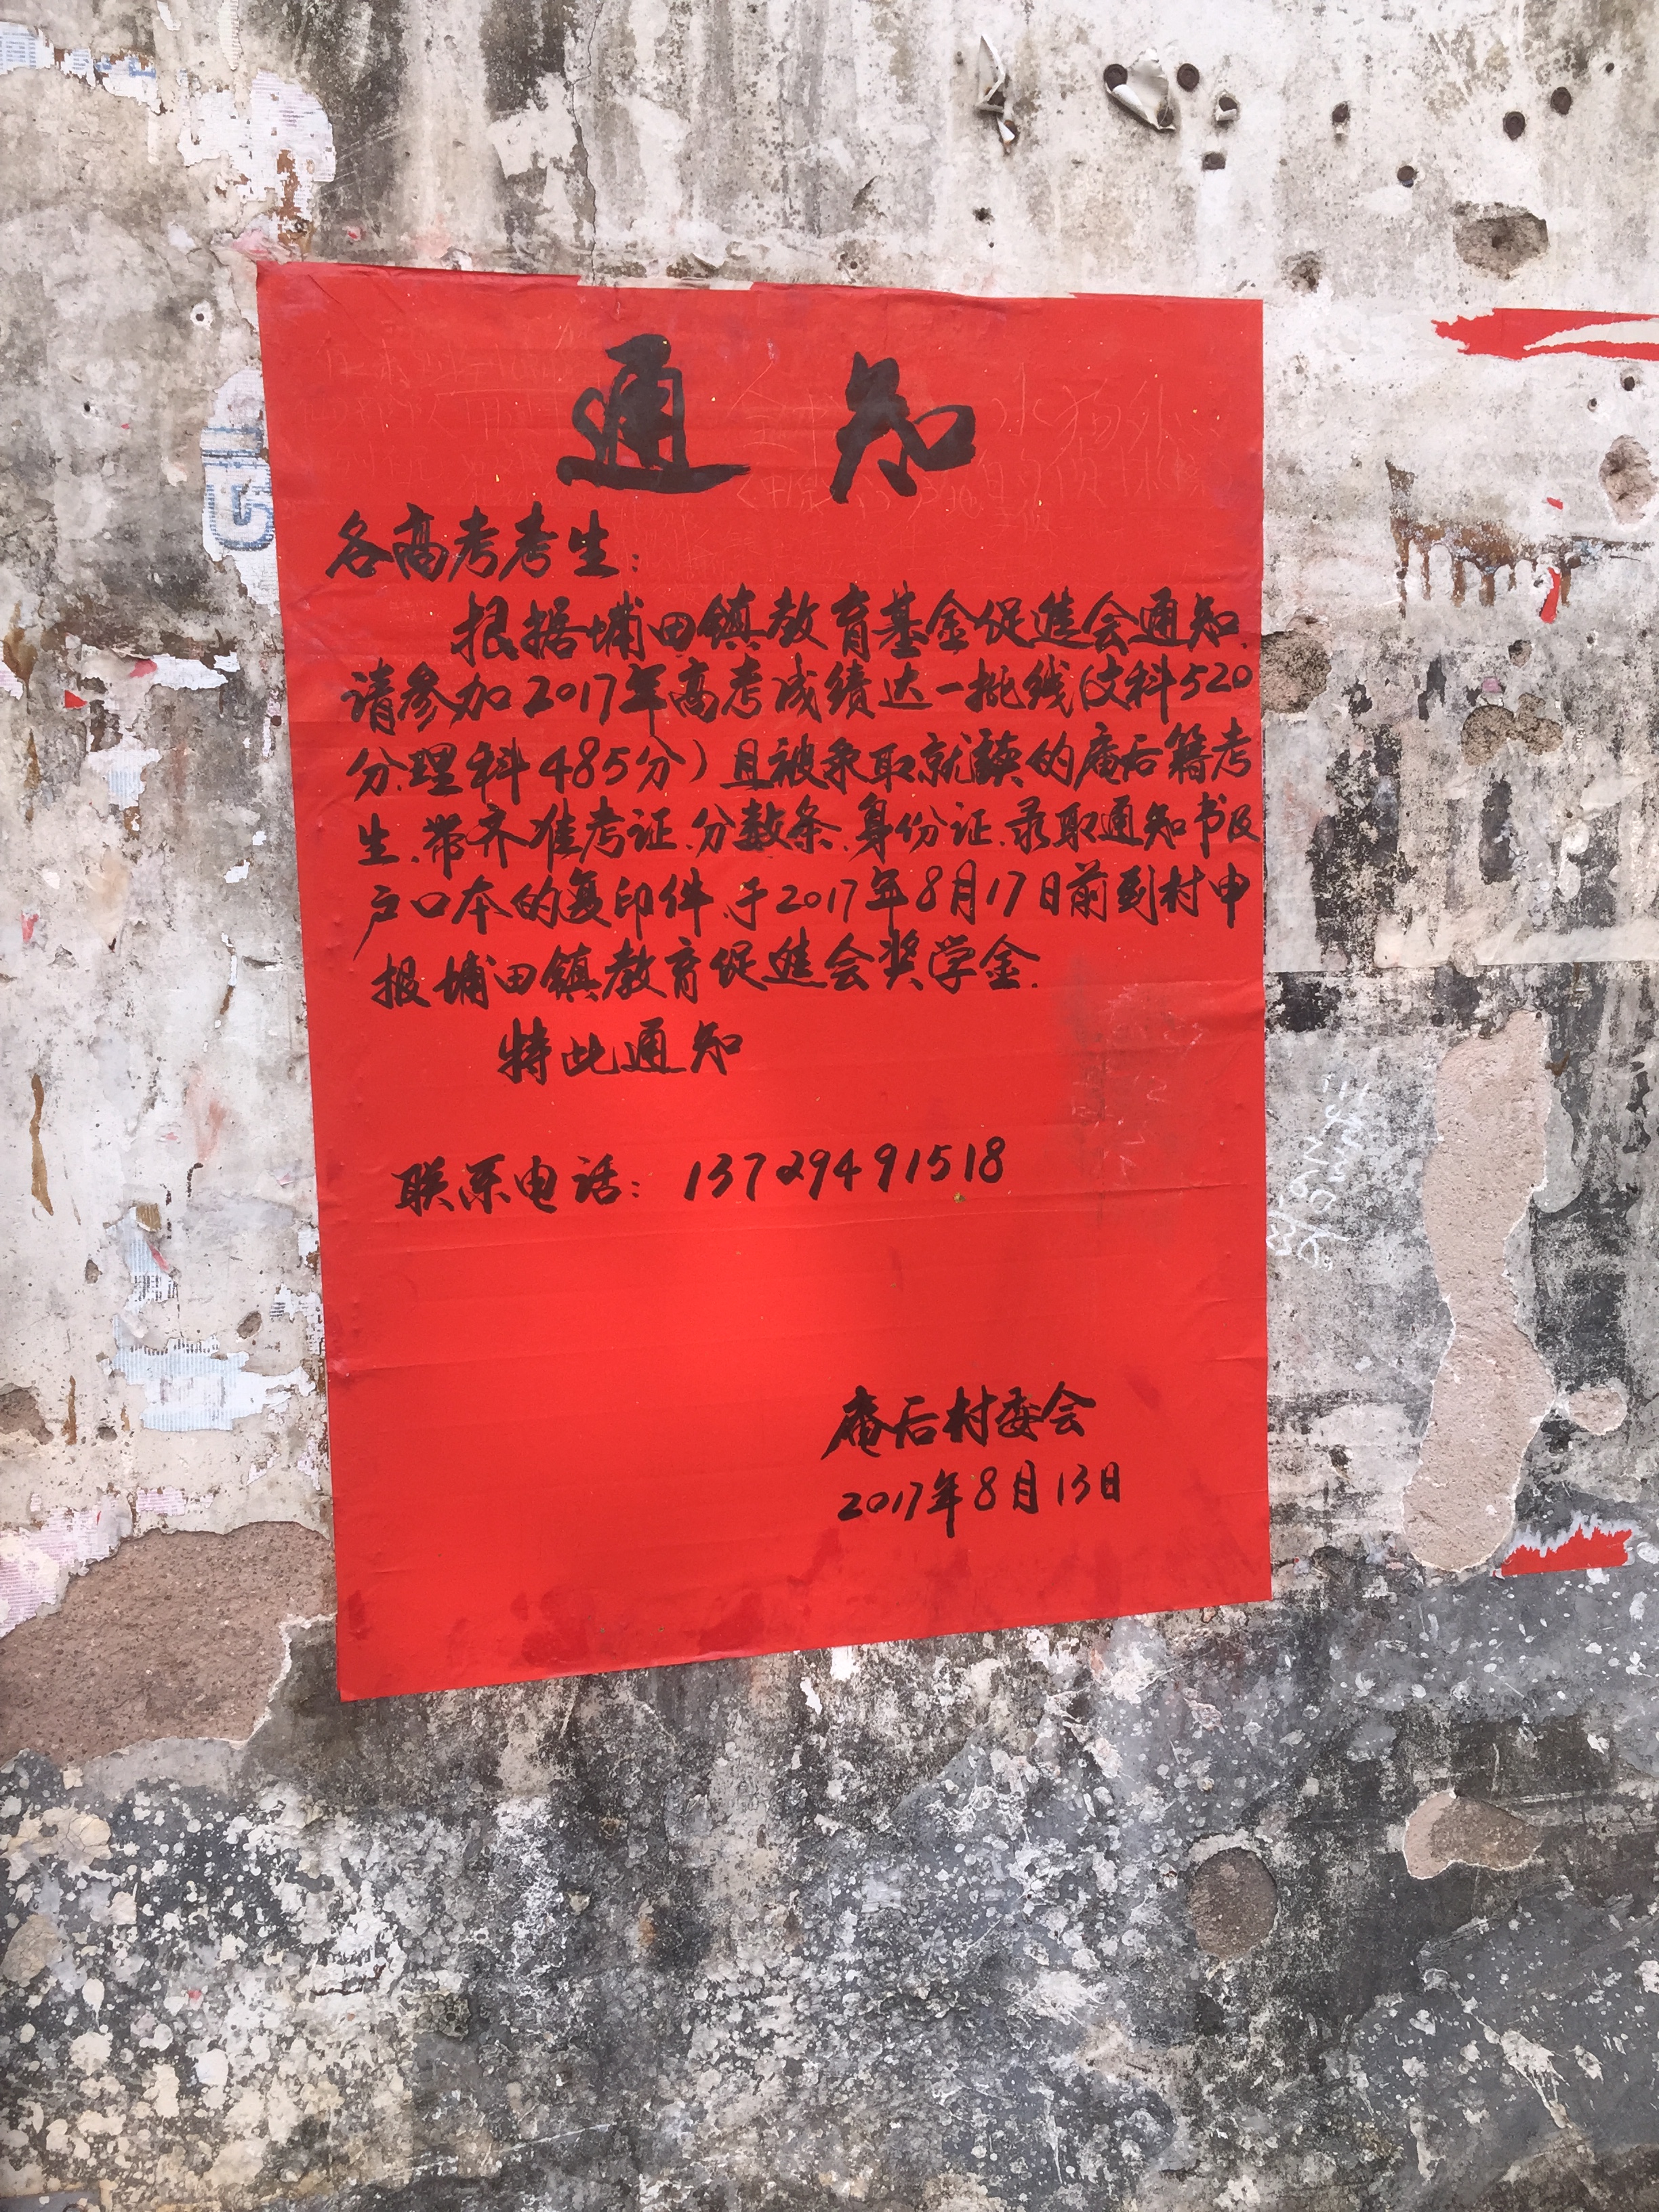 通知
各高考考生：
根据埔田镇教育基金促进会通知，
请参加2017年高考成绩达一批线（文科520
分、理科485分）且被录取就读的庵后籍考
生、带齐准考证、分数条、身份证、录取通知书及
户口本的复印件，于2017年8月17日前到村申
报埔田镇教育促进会奖学金.
特此通知
联系电话：13729491518
庵后村委会
2017年8月13日